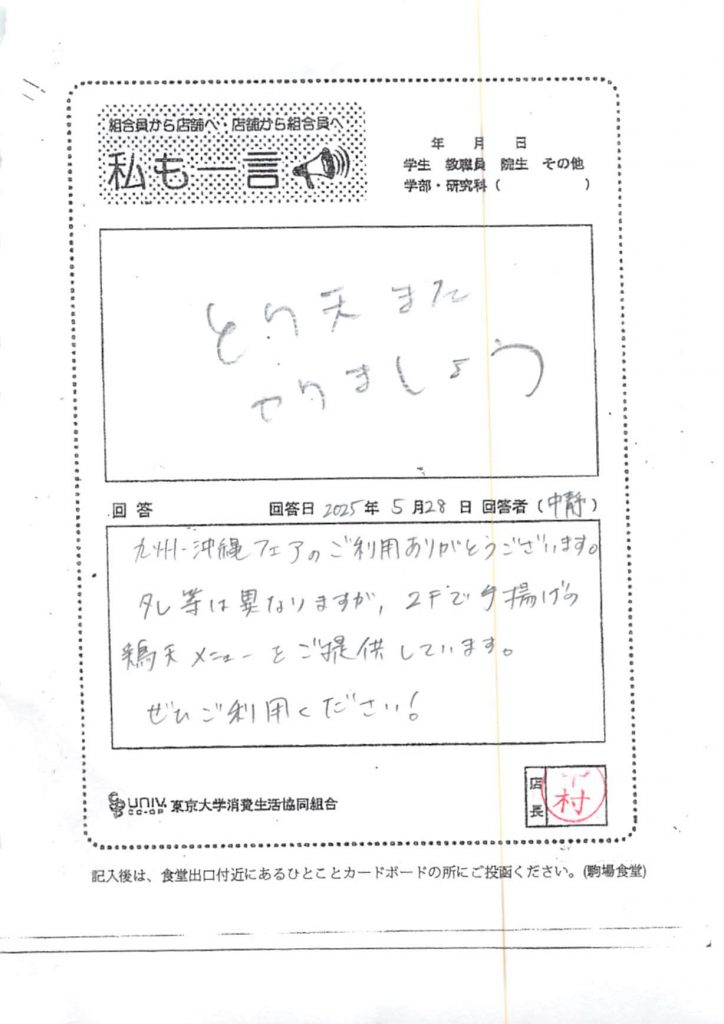 組合員から店舗へ・店舗から組合員へ
私も一言
年 月 日
学生 教職員 院生 その他
学部・研究科 ( )
とり天また
やりましょう
回答 回答日 2025年 5月28日 回答者 (中静)
九州-沖縄フェアのご利用ありがとうございます。
タレ等は異なりますが、2Fで手揚げの
鶏天メニューをご提供しています。
ぜひご利用ください!
UNIV. CO-OP 東京大学消費生活協同組合
店長
村
記入後は、食堂出口付近にあるひとことカードボードの所にご投函ください。(駒場食堂)